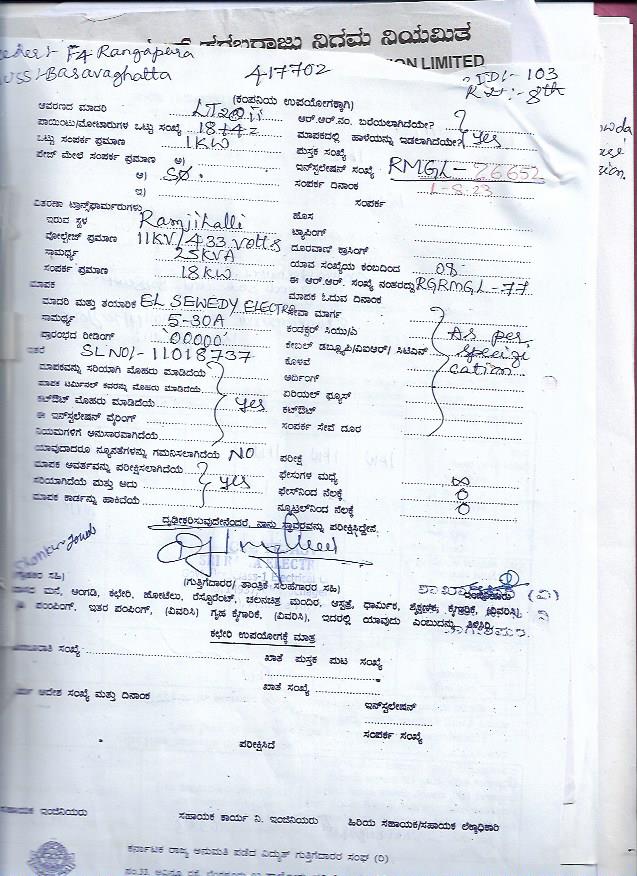 F4 Rangapura
Basavaghatta
ಸರಬರಾಜು ನಿಗಮ ನಿಯಮಿತ
LIMITED
417702
103
8th
(ಕಂಪನಿಯ ಉಪಯೋಗಕ್ಕಾಗಿ)
ಆವರಣದ ಮಾದರಿ
ಆರ್.ಆರ್.ನಂ. ಬರೆಯಲಾಗಿದೆಯೇ?
ಪಾಯಿಂಟು/ಮೋಟಾರುಗಳ ಒಟ್ಟು ಸಂಖ್ಯೆ 18+4=2
ಮಾಪಕದಲ್ಲಿ ಹಾಳೆಯನ್ನು ಇಡಲಾಗಿದೆಯೇ? yes
ಒಟ್ಟು ಸಂಪರ್ಕ ಪ್ರಮಾಣ 1KW
ಪುಸ್ತಕ ಸಂಖ್ಯೆ
ಪೇಜ್ ಮೇಲೆ ಸಂಪರ್ಕ ಪ್ರಮಾಣ ಅ)
ಇನ್‌ಸ್ಟಲೇಷನ್ ಸಂಖ್ಯೆ RMGL- 26652
ಆ)
ಸಂಪರ್ಕ ದಿನಾಂಕ 1-8-23
ಇ)
ಸಂಪರ್ಕ
ವಿತರಣಾ ಟ್ರಾನ್ಸ್‌ಫಾರ್ಮರುಗಳು
ಹೊಸ
ಇರುವ ಸ್ಥಳ Ramjihalli
ಟ್ಯಾಪಿಂಗ್
ವೋಲ್ಟೇಜ್ ಪ್ರಮಾಣ 11KV/433 volts
ದೂರವಾಣಿ ಕ್ರಾಸಿಂಗ್
ಸಾಮರ್ಥ್ಯ 25KVA
ಯಾವ ಸಂಖ್ಯೆಯ ಕಂಬದಿಂದ 08
ಸಂಪರ್ಕ ಪ್ರಮಾಣ 18KW
ಈ ಆರ್.ಆರ್. ಸಂಖ್ಯೆ ನಂತರದ್ದು RGRMGL-77
ಮಾಪಕ
ಮಾಪಕ ಓದುವ ದಿನಾಂಕ
ಮಾದರಿ ಮತ್ತು ತಯಾರಿಕೆ EL SEWEDY ELECTRO
ಸೇವಾ ಮಾರ್ಗ
ಸಾಮರ್ಥ್ಯ 5-30A
ಕಂಡಕ್ಟರ್ ಸಿಯು/ಎ
As per
ಪ್ರಾರಂಭದ ರೀಡಿಂಗ್ '00000'
ಕೇಬಲ್ ಡಬ್ಲ್ಯೂಪಿ/ವಿಐಆರ್/ ಸಿಟಿಎಸ್
ಇತರೆ SL NO/- 11018737
ಕೊಳವೆ
cation
ಮಾಪಕವನ್ನು ಸರಿಯಾಗಿ ಮೊಹರು ಮಾಡಿದೆಯೆ
ಅರ್ದಿಂಗ್
ಮಾಪಕ ಟರ್ಮಿನಲ್ ಕವರನ್ನು ಮೊಹರು ಮಾಡಿದೆಯೆ
ಏರಿಯಲ್ ಫ್ಯೂಸ್
ಕಟ್‌ಔಟ್ ಮೊಹರು ಮಾಡಿದೆಯೆ yes
ಕಟ್‌ಔಟ್
ಈ ಇನ್‌ಸ್ಟಲೇಷನ್ ವೈರಿಂಗ್
ಸಂಪರ್ಕ ಸೇವೆ ದೂರ
ನಿಯಮಗಳಿಗೆ ಅನುಸಾರವಾಗಿದೆಯೆ
ಯಾವುದಾದರೂ ನ್ಯೂನತೆಗಳನ್ನು ಗಮನಿಸಲಾಗಿದೆಯೆ NO
ಪರೀಕ್ಷೆ
ಮಾಪಕ ಆವರ್ತವನ್ನು ಪರೀಕ್ಷಿಸಲಾಗಿದೆಯೆ
ಫೇಸುಗಳ ಮಧ್ಯೆ ∞
ಸರಿಯಾಗಿದೆಯೆ ಮತ್ತು ಅದು yes
ಫೇಸ್‌ನಿಂದ ನೆಲಕ್ಕೆ 0
ಮಾಪಕ ಕಾರ್ಡನ್ನು ಹಾಕಿದೆಯೆ
ನ್ಯೂಟ್ರಲ್‌ನಿಂದ ನೆಲಕ್ಕೆ 0
ದೃಢೀಕರಿಸುವುದೇನೆಂದರೆ, ನಾನು ಸ್ಥಾವರವನ್ನು ಪರೀಕ್ಷಿಸಿದ್ದೇನೆ.
(ಗ್ರಾಹಕರ ಸಹಿ)
(ಗುತ್ತಿಗೆದಾರರ/ ತಾಂತ್ರಿಕ ಸಲಹೆಗಾರರ ಸಹಿ)
ವಾಸದ ಮನೆ, ಅಂಗಡಿ, ಕಛೇರಿ, ಹೋಟೆಲು, ರೆಸ್ಟೊರೆಂಟ್, ಚಲನಚಿತ್ರ ಮಂದಿರ, ಆಸ್ಪತ್ರೆ, ಧಾರ್ಮಿಕ, ಶೈಕ್ಷಣಿಕ, ಕೈಗಾರಿಕೆ, (ವಿವರಿಸಿ),
ಪಂಪಿಂಗ್, ಇತರ ಪಂಪಿಂಗ್, (ವಿವರಿಸಿ) ಗೃಹ ಕೈಗಾರಿಕೆ, (ವಿವರಿಸಿ), ಇದರಲ್ಲಿ ಯಾವುದು ಎಂಬುದನ್ನು ತಿಳಿಸಿರಿ.
ಕಛೇರಿ ಉಪಯೋಗಕ್ಕೆ ಮಾತ್ರ
ಸಂಖ್ಯೆ
ಖಾತೆ ಪುಸ್ತಕ ಪುಟ ಸಂಖ್ಯೆ
ಖಾತೆ ಸಂಖ್ಯೆ
ಆದೇಶ ಸಂಖ್ಯೆ ಮತ್ತು ದಿನಾಂಕ
ಇನ್‌ಸ್ಟಲೇಷನ್
ಸಂಪರ್ಕ ಸಂಖ್ಯೆ
ಪರೀಕ್ಷಿಸಿದೆ
ಸಹಾಯಕ ಇಂಜಿನಿಯರು
ಸಹಾಯಕ ಕಾರ್ಯ ನಿ. ಇಂಜಿನಿಯರು
ಹಿರಿಯ ಸಹಾಯಕ/ಸಹಾಯಕ ಲೆಕ್ಕಾಧಿಕಾರಿ
ಕರ್ನಾಟಕ ರಾಜ್ಯ ಅನುಮತಿ ಪಡೆದ ವಿದ್ಯುತ್ ಗುತ್ತಿಗೆದಾರರ ಸಂಘ (ರಿ)